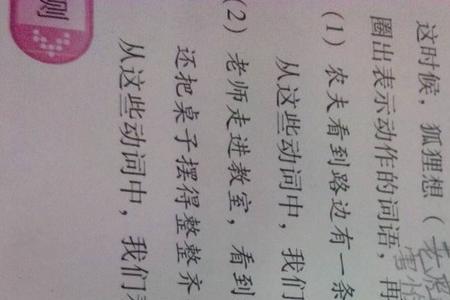 这时候，狐狸想（
圈出表示动作的词语，再
(1) 农夫看到路边有一条
从这些动词中，我们
(2) 老师走进教室，看到
还把桌子摆得整整齐
从这些动词中，我们
测